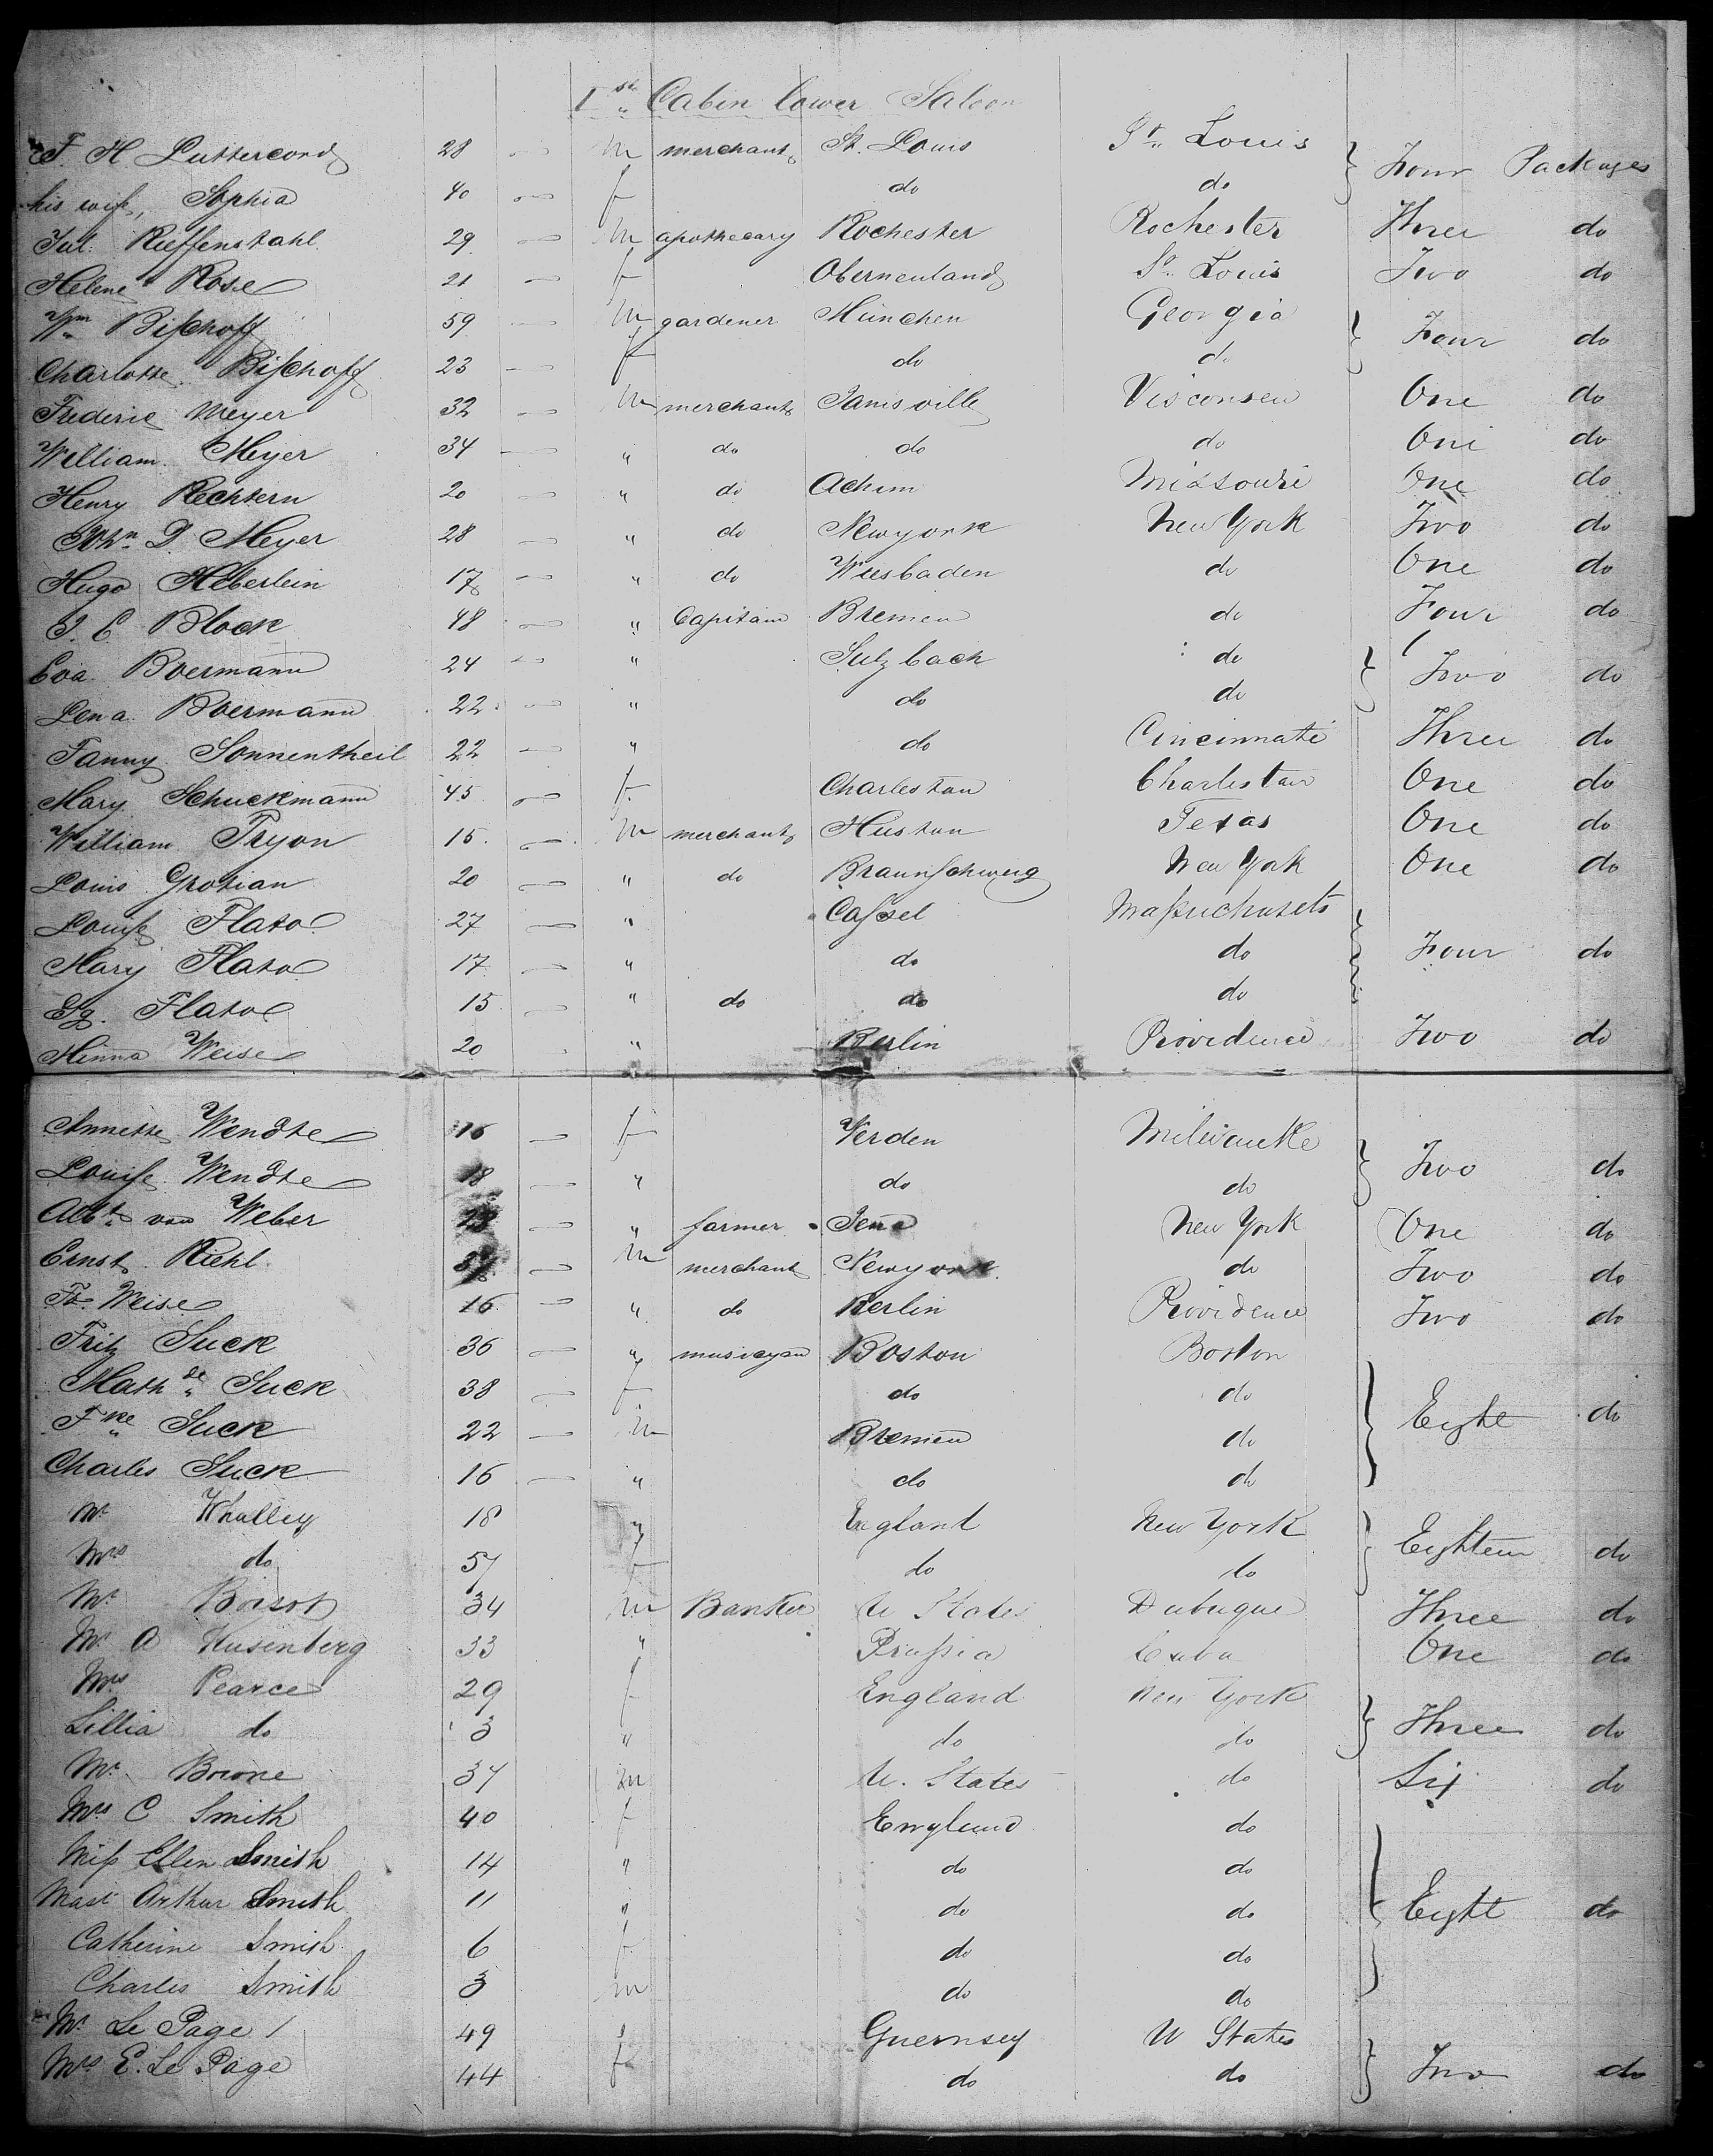 1st Cabin lower Saloon
F. H. Luttercord 28 — m merchant St. Louis St. Louis Four Packages
his wife, Sophia 40 — f do do
Jul. Rieffenstahl 29 — m apothecary Rochester Rochester Three do
Helene Rose 21 — f Oberneuland St. Louis Two do
Wm Bischoff 59 — m gardener München Georgia Four do
Charlotte Bischoff 23 — f do do
Frederic Meyer 32 — m merchant Janisville Visconsen One do
William Meyer 34 — " do do do One do
Henry Rechtern 20 — " do Achim Missouri One do
D. Meyer 28 — " do Newyork New York Two do
Hugo Heberlein 17 — " do Wiesbaden do One do
J. C Block 48 — " Capitain Bremen do Four do
Eva Boermann 24 — " Sulzbach do Two do
Lena Boermann 22 — " do do
Fanny Sonnentheil 22 — " do Cincinnati Three do
Mary Schuckmann 45 — f Charleston Charleston One do
William Pryon 15 — m merchant Huston Texas One do
Louis Grotian 20 — " do Braunschweig New York One do
Louise Flato 27 — " Cassel Massuchusets Four do
Mary Flato 17 — " do do
Flato 15 — " do do do
Minna Weise 20 " Berlin Providence Two do
Annette Wendte 16 — f Verden Milwaukee Two do
Louise Wendte 18 — " do do
Albt von Weber — " farmer Jena New York One do
Ernst Riehl — m merchant Newyork do Two do
Weise 16 — " do Berlin Providence Two do
Fritz Suck 36 — " musicyan Boston Boston Eight do
Mathde Suck 38 — f do do
Fke Suck 22 — m Bremen do
Charles Suck 16 — " do do
Mr Whalley 18 " England New York Eighteen do
Mrs do 57 f do do
Mr Boisot 34 m Banker U States Dubuque Three do
Mr A Husenberg 33 " Prussia Cuba One do
Mrs Pearce 29 f England New York Three do
Lillia do 3 " do do
Mr. Boone 37 m U. States do Six do
Mrs C Smith 40 f England do Eight do
Miss Ellen Smith 14 " do do
Mast Arthur Smith 11 " do do
Catherine Smith 6 f do do
Charles Smith 3 m do do
Mr Le Page 49 " Guernsey U States Two do
Mrs E. Le Page 44 f do do